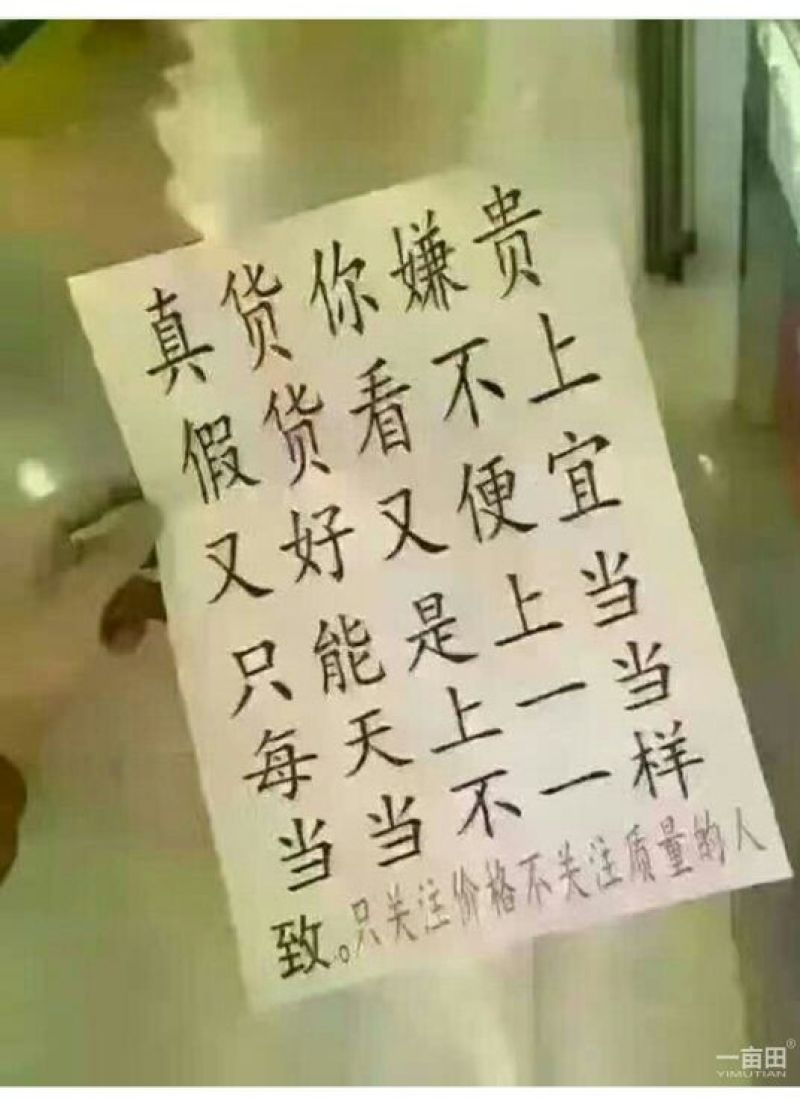 真货你嫌贵
假货看不上
又好又便宜
只能是上当
每天上一当
当当不一样
致。只关注价格不关注质量的人
一亩田®
YIMUTIAN